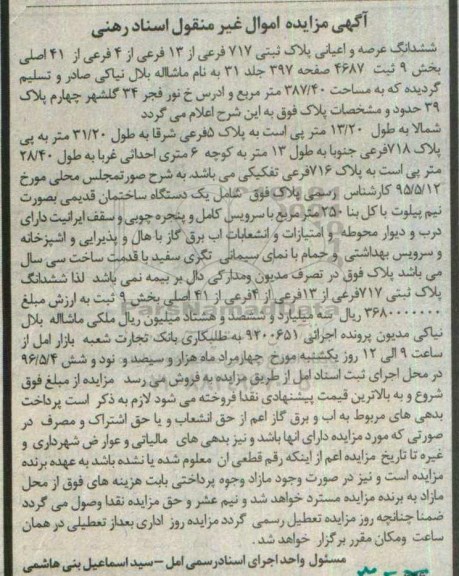 آگهی مزایده اموال غیر منقول اسناد رهنی
ششدانگ عرصه و اعیانی پلاک ثبتی ۷۱۷ فرعی از ۱۳ فرعی از ۴ فرعی از ۴۱ اصلی
بخش ۹ ثبت ۴۶۸۷ صفحه ۳۹۷ جلد ۳۱ به نام ماشااله بلال نیاکی صادر و تسلیم
گردیده که به مساحت ۳۸۷/۴۰ متر مربع و ادرس خ نور فجر ۳۴ گلشهر چهارم پلاک
۳۹ حدود و مشخصات پلاک فوق به این شرح اعلام می گردد
شمالا به طول ۱۳/۲۰ متر پی است به پلاک ۵فرعی شرقا به طول ۳۱/۲۰ متر به پی
پلاک ۷۱۸فرعی جنوبا به طول ۱۳ متر به کوچه ۶ متری احداثی غربا به طول ۲۸/۴۰
متر پی است به پلاک ۷۱۶فرعی تفکیکی می باشد.به شرح صورتمجلس محلی مورخ
۹۵/۵/۱۲ کارشناس رسمی پلاک فوق شامل یک دستگاه ساختمان قدیمی بصورت
نیم پیلوت با کل بنا ۲۵۰متر مربع با سرویس کامل و پنجره چوبی و سقف ایرانیت دارای
درب و دیوار محوطه و امتیازات و انشعابات اب برق گاز با هال و پذیرایی و اشپزخانه
و سرویس بهداشتی و حمام با نمای سیمانی تگری سفید با قدمت ساخت سی سال
می باشد پلاک فوق در تصرف مدیون ومدارکی دال بر بیمه نمی باشد لذا ششدانگ
پلاک ثبتی ۷۱۷فرعی از ۱۳فرعی از ۴فرعی از ۴۱ اصلی بخش ۹ ثبت به ارزش مبلغ
۳۶۸۰۰۰۰۰۰۰ ریال سه میلیارد و ششصد و هشتاد میلیون ریال ملکی ماشااله بلال
نیاکی مدیون پرونده اجرائی ۹۲۰۰۶۵۱ به طلبکاری بانک تجارت شعبه بازار امل از
ساعت ۹ الی ۱۲ روز یکشنبه مورخ چهارمراد ماه هزار و سیصد و نود و شش ۹۶/۵/۴
در محل اجرای ثبت اسناد امل از طریق مزایده به فروش می رسد مزایده از مبلغ فوق
شروع و به بالاترین قیمت پیشنهادی نقدا فروخته می شود لازم به ذکر است پرداخت
بدهی های مربوط به اب و برق گاز اعم از حق انشعاب و یا حق اشتراک و مصرف در
صورتی که مورد مزایده دارای انها باشد و نیز بدهی های مالیاتی و عوار ض شهرداری و
غیره تا تاریخ مزایده اعم از اینکه رقم قطعی ان معلوم شده یا نشده باشد به عهده برنده
مزایده است و نیز در صورت وجود مازاد وجوه پرداختی بابت هزینه های فوق از محل
مازاد به برنده مزایده مسترد خواهد شد و نیم عشر و حق مزایده نقدا وصول می گردد
ضمنا چنانچه روز مزایده تعطیل رسمی گردد مزایده روز اداری بعداز تعطیلی در همان
ساعت ومکان مقرر برگزار خواهد شد.
مسئول واحد اجرای اسنادرسمی امل – سید اسماعیل بنی هاشمی